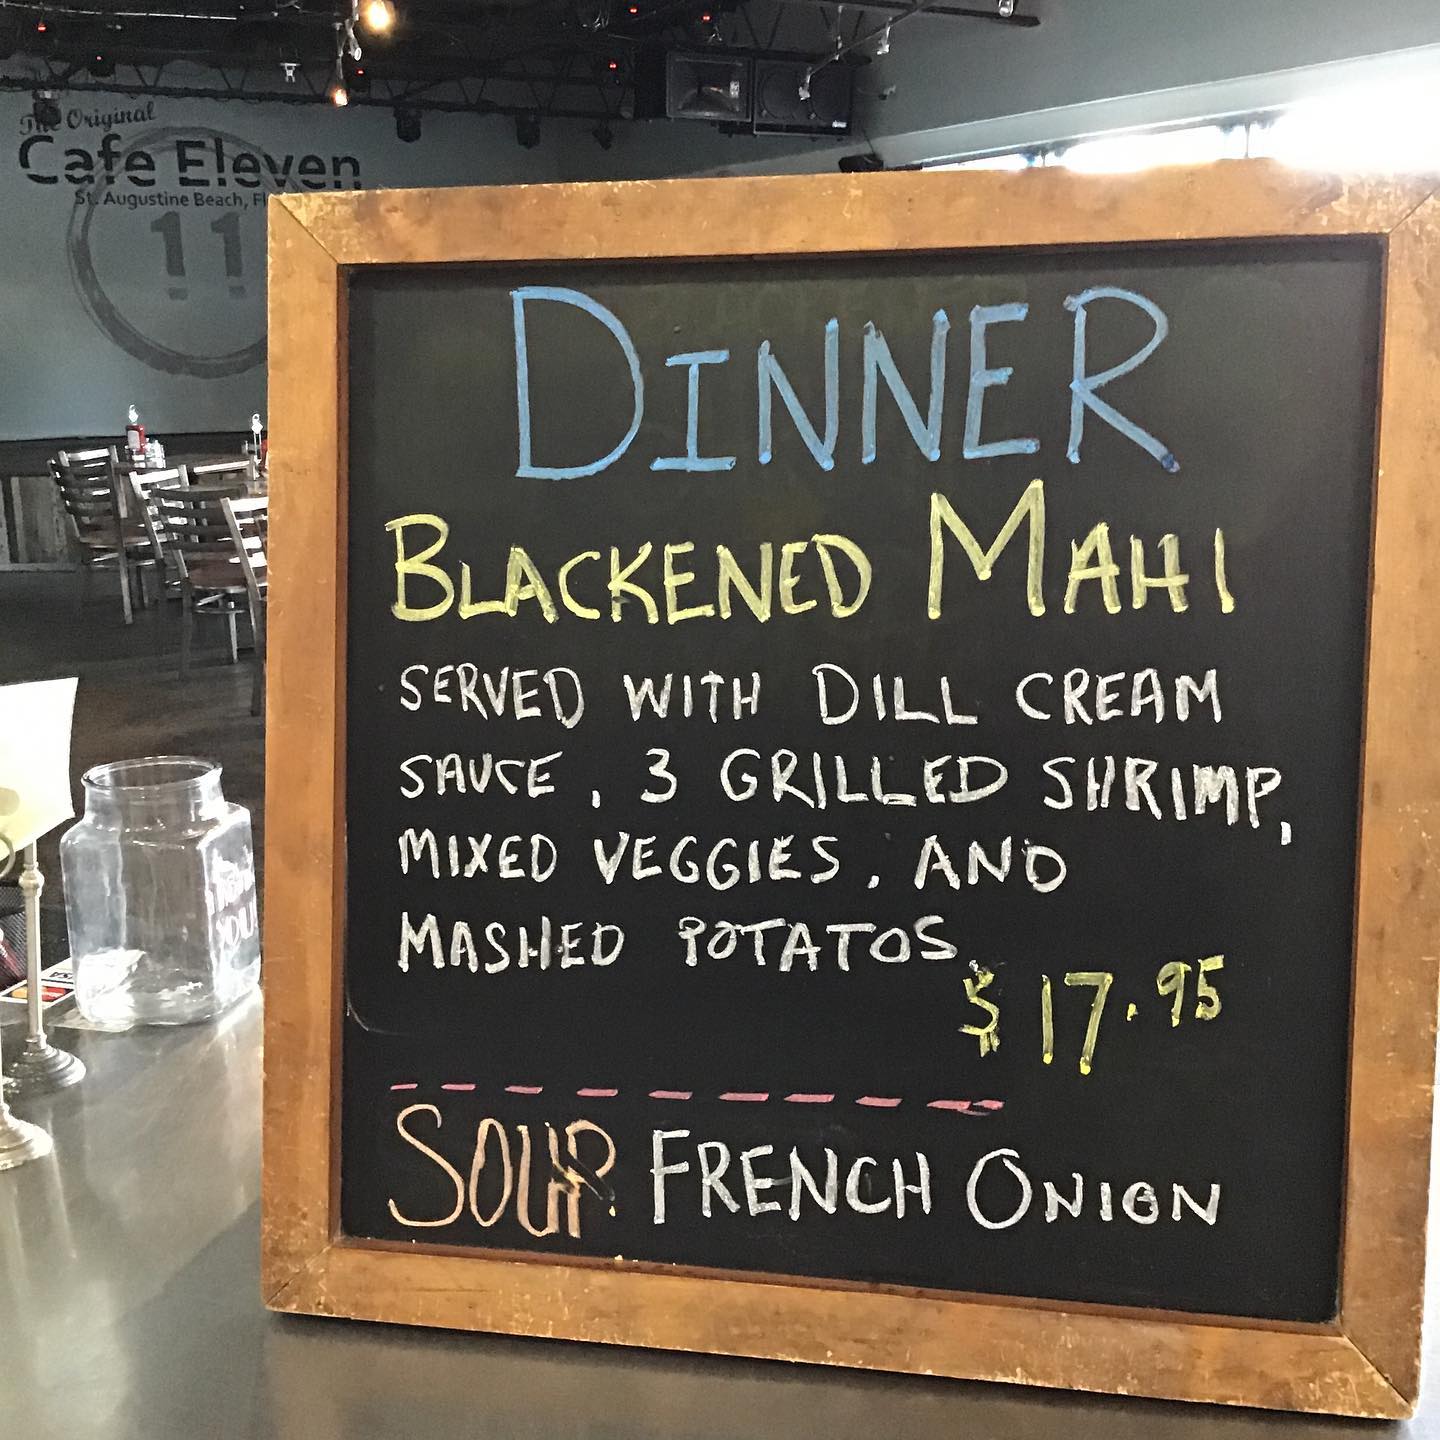 The Original
Cafe Eleven
St. Augustine Beach,
11
DINNER
BLACKENED MAHI
SERVED WITH DILL CREAM
SAUCE, 3 GRILLED SHRIMP,
MIXED VEGGIES, AND
MASHED POTATOS.
$17.95
SOUP: FRENCH ONION
YOU
VISA